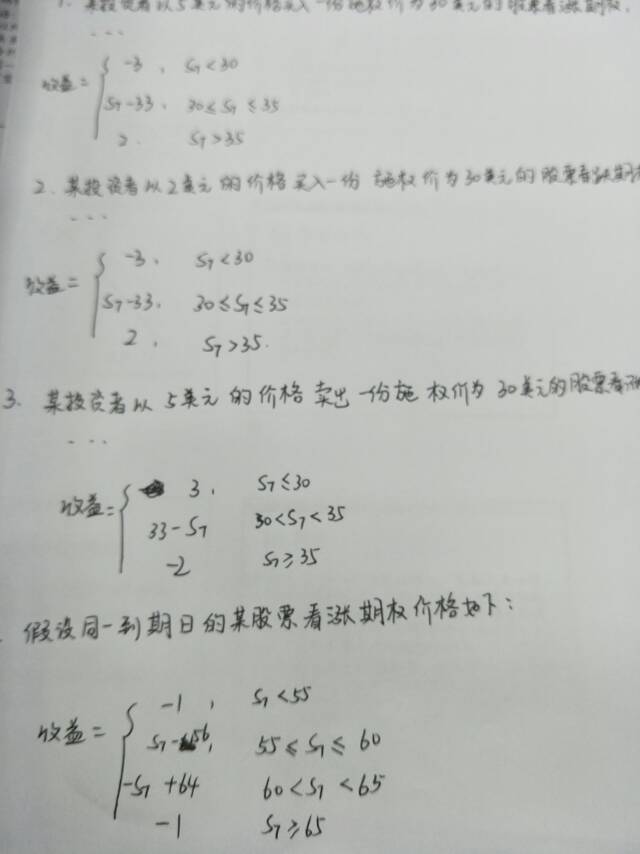 1. 某投资者以5美元的价格买入一份施权价为30美元的股票看涨期权,
...
收益= { -3, S_T<30
S_T-33, 30≤S_T≤35
2. S_T>35
2. 某投资者以2美元的价格买入一份 施权价为30美元的股票看涨期权
...
收益= { -3, S_T<30
S_T-33, 30≤S_T≤35
2, S_T>35.
3. 某投资者以 5美元的价格卖出一份施权价为30美元的股票看涨
...
收益= { 3, S_T≤30
33-S_T 30<S_T<35
-2 S_T≥35
假设同一到期日的某股票看涨期权价格如下:
收益= { -1, S_T<55
S_T-56, 55≤S_T≤60
-S_T+64 60<S_T<65
-1 S_T≥65